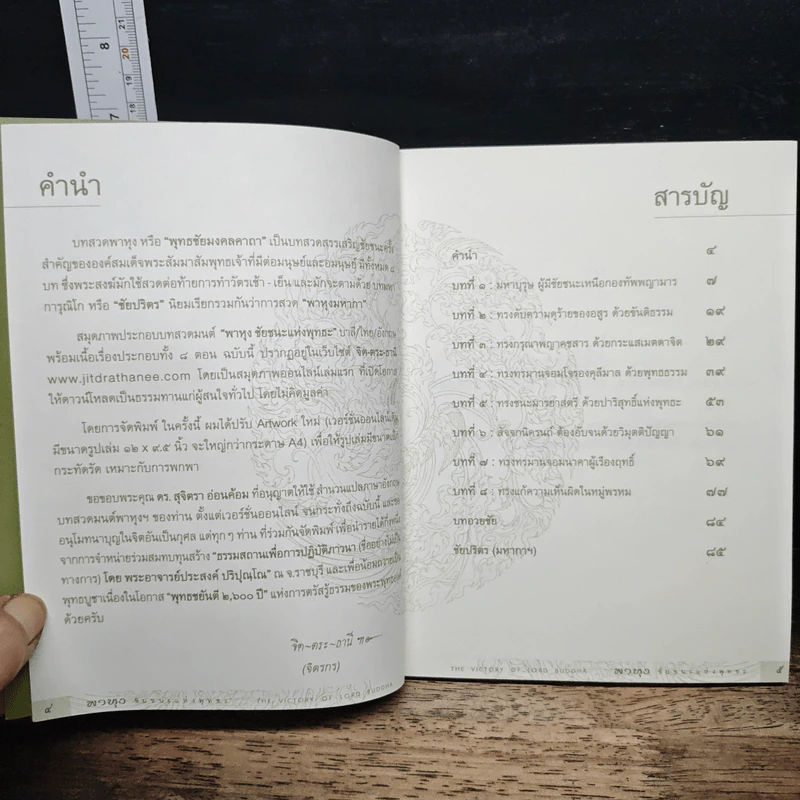 8
7
21
20
19
18
คำนำ
บทสวดพาหุง หรือ "พุทธชัยมงคลคาถา" เป็นบทสวดสรรเสริญชัยชนะครั้ง
สำคัญขององค์สมเด็จพระสัมมาสัมพุทธเจ้าที่มีต่อมนุษย์และอมนุษย์ มีทั้งหมด ๘
บท ซึ่งพระสงฆ์มักใช้สวดต่อท้ายการทำวัตรเช้า - เย็น และมักจะตามด้วย บทมหา
การุณิโก หรือ "ชัยปริตร" นิยมเรียกรวมกันว่าการสวด "พาหุงมหากา"
สมุดภาพประกอบบทสวดมนต์ "พาหุง ชัยชนะแห่งพุทธะ" บาลี/ไทย/อังกฤษ
พร้อมเนื้อเรื่องประกอบทั้ง ๘ ตอน ฉบับนี้ ปรากฏอยู่ในเว็บไซต์ จิต-ตระ-ธานี
www.jitdrathanee.com โดยเป็นสมุดภาพออนไลน์เล่มแรก ที่เปิดโอกาส
ให้ดาวน์โหลดเป็นธรรมทานแก่ผู้สนใจทั่วไป โดยไม่คิดมูลค่า
โดยการจัดพิมพ์ ในครั้งนี้ ผมได้ปรับ Artwork ใหม่ (เวอร์ชั่นออนไลน์เดิม
มีขนาดรูปเล่ม ๑๒ x ๙.๕ นิ้ว จะใหญ่กว่ากระดาษ A4) เพื่อให้รูปเล่มมีขนาดเล็ก
กระทัดรัด เหมาะกับการพกพา
ขอขอบพระคุณ ดร. สุจิตรา อ่อนค้อม ที่อนุญาตให้ใช้ สำนวนแปลภาษาอังกฤษ
บทสวดมนต์พาหุงฯ ของท่าน ตั้งแต่เวอร์ชั่นออนไลน์ จนกระทั่งถึงฉบับนี้ และขอ
อนุโมทนาบุญในจิตอันเป็นกุศล แด่ทุก ๆ ท่าน ที่ร่วมกันจัดพิมพ์ เพื่อนำรายได้ทั้งหมด
จากการจำหน่ายร่วมสมทบทุนสร้าง "ธรรมสถานเพื่อการปฏิบัติภาวนา (ชื่ออย่างไม่เป็น
ทางการ) โดย พระอาจารย์ประสงค์ ปริปุณโณ" ณ จ.ราชบุรี และเพื่อน้อมถวายเป็น
พุทธบูชาเนื่องในโอกาส "พุทธชยันตี ๒,๖๐๐ ปี" แห่งการตรัสรู้ธรรมของพระพุทธองค์
ด้วยครับ
จิต~ตระ~ธานี
(จิตรกร)
๔ พาหุง ชัยชนะแห่งพุทธะ THE VICTORY OF LORD BUDDHA
สารบัญ
คำนำ ๔
บทที่ ๑ : มหาบุรุษ ผู้มีชัยชนะเหนือกองทัพพญามาร ๗
บทที่ ๒ : ทรงดับความดุร้ายของอสูร ด้วยขันติธรรม ๑๙
บทที่ ๓ : ทรงกรุณาพญาคชสาร ด้วยกระแสเมตตาจิต ๒๙
บทที่ ๔ : ทรงทรมานจอมโจรองคุลีมาล ด้วยพุทธธรรม ๓๙
บทที่ ๕ : ทรงชนะมารยาสตรี ด้วยปาริสุทธิ์แห่งพุทธะ ๕๓
บทที่ ๖ : สัจจกนิครนถ์ ต้องอับจนด้วยวิมุตติปัญญา ๖๑
บทที่ ๗ : ทรงทรมานจอมนาคาผู้เรืองฤทธิ์ ๖๙
บทที่ ๘ : ทรงแก้ความเห็นผิดในหมู่พรหม ๗๗
บทอวยชัย ๘๔
ชัยปริตร (มหากาฯ) ๘๕
THE VICTORY OF LORD BUDDHA พาหุง ชัยชนะแห่งพุทธะ ๕